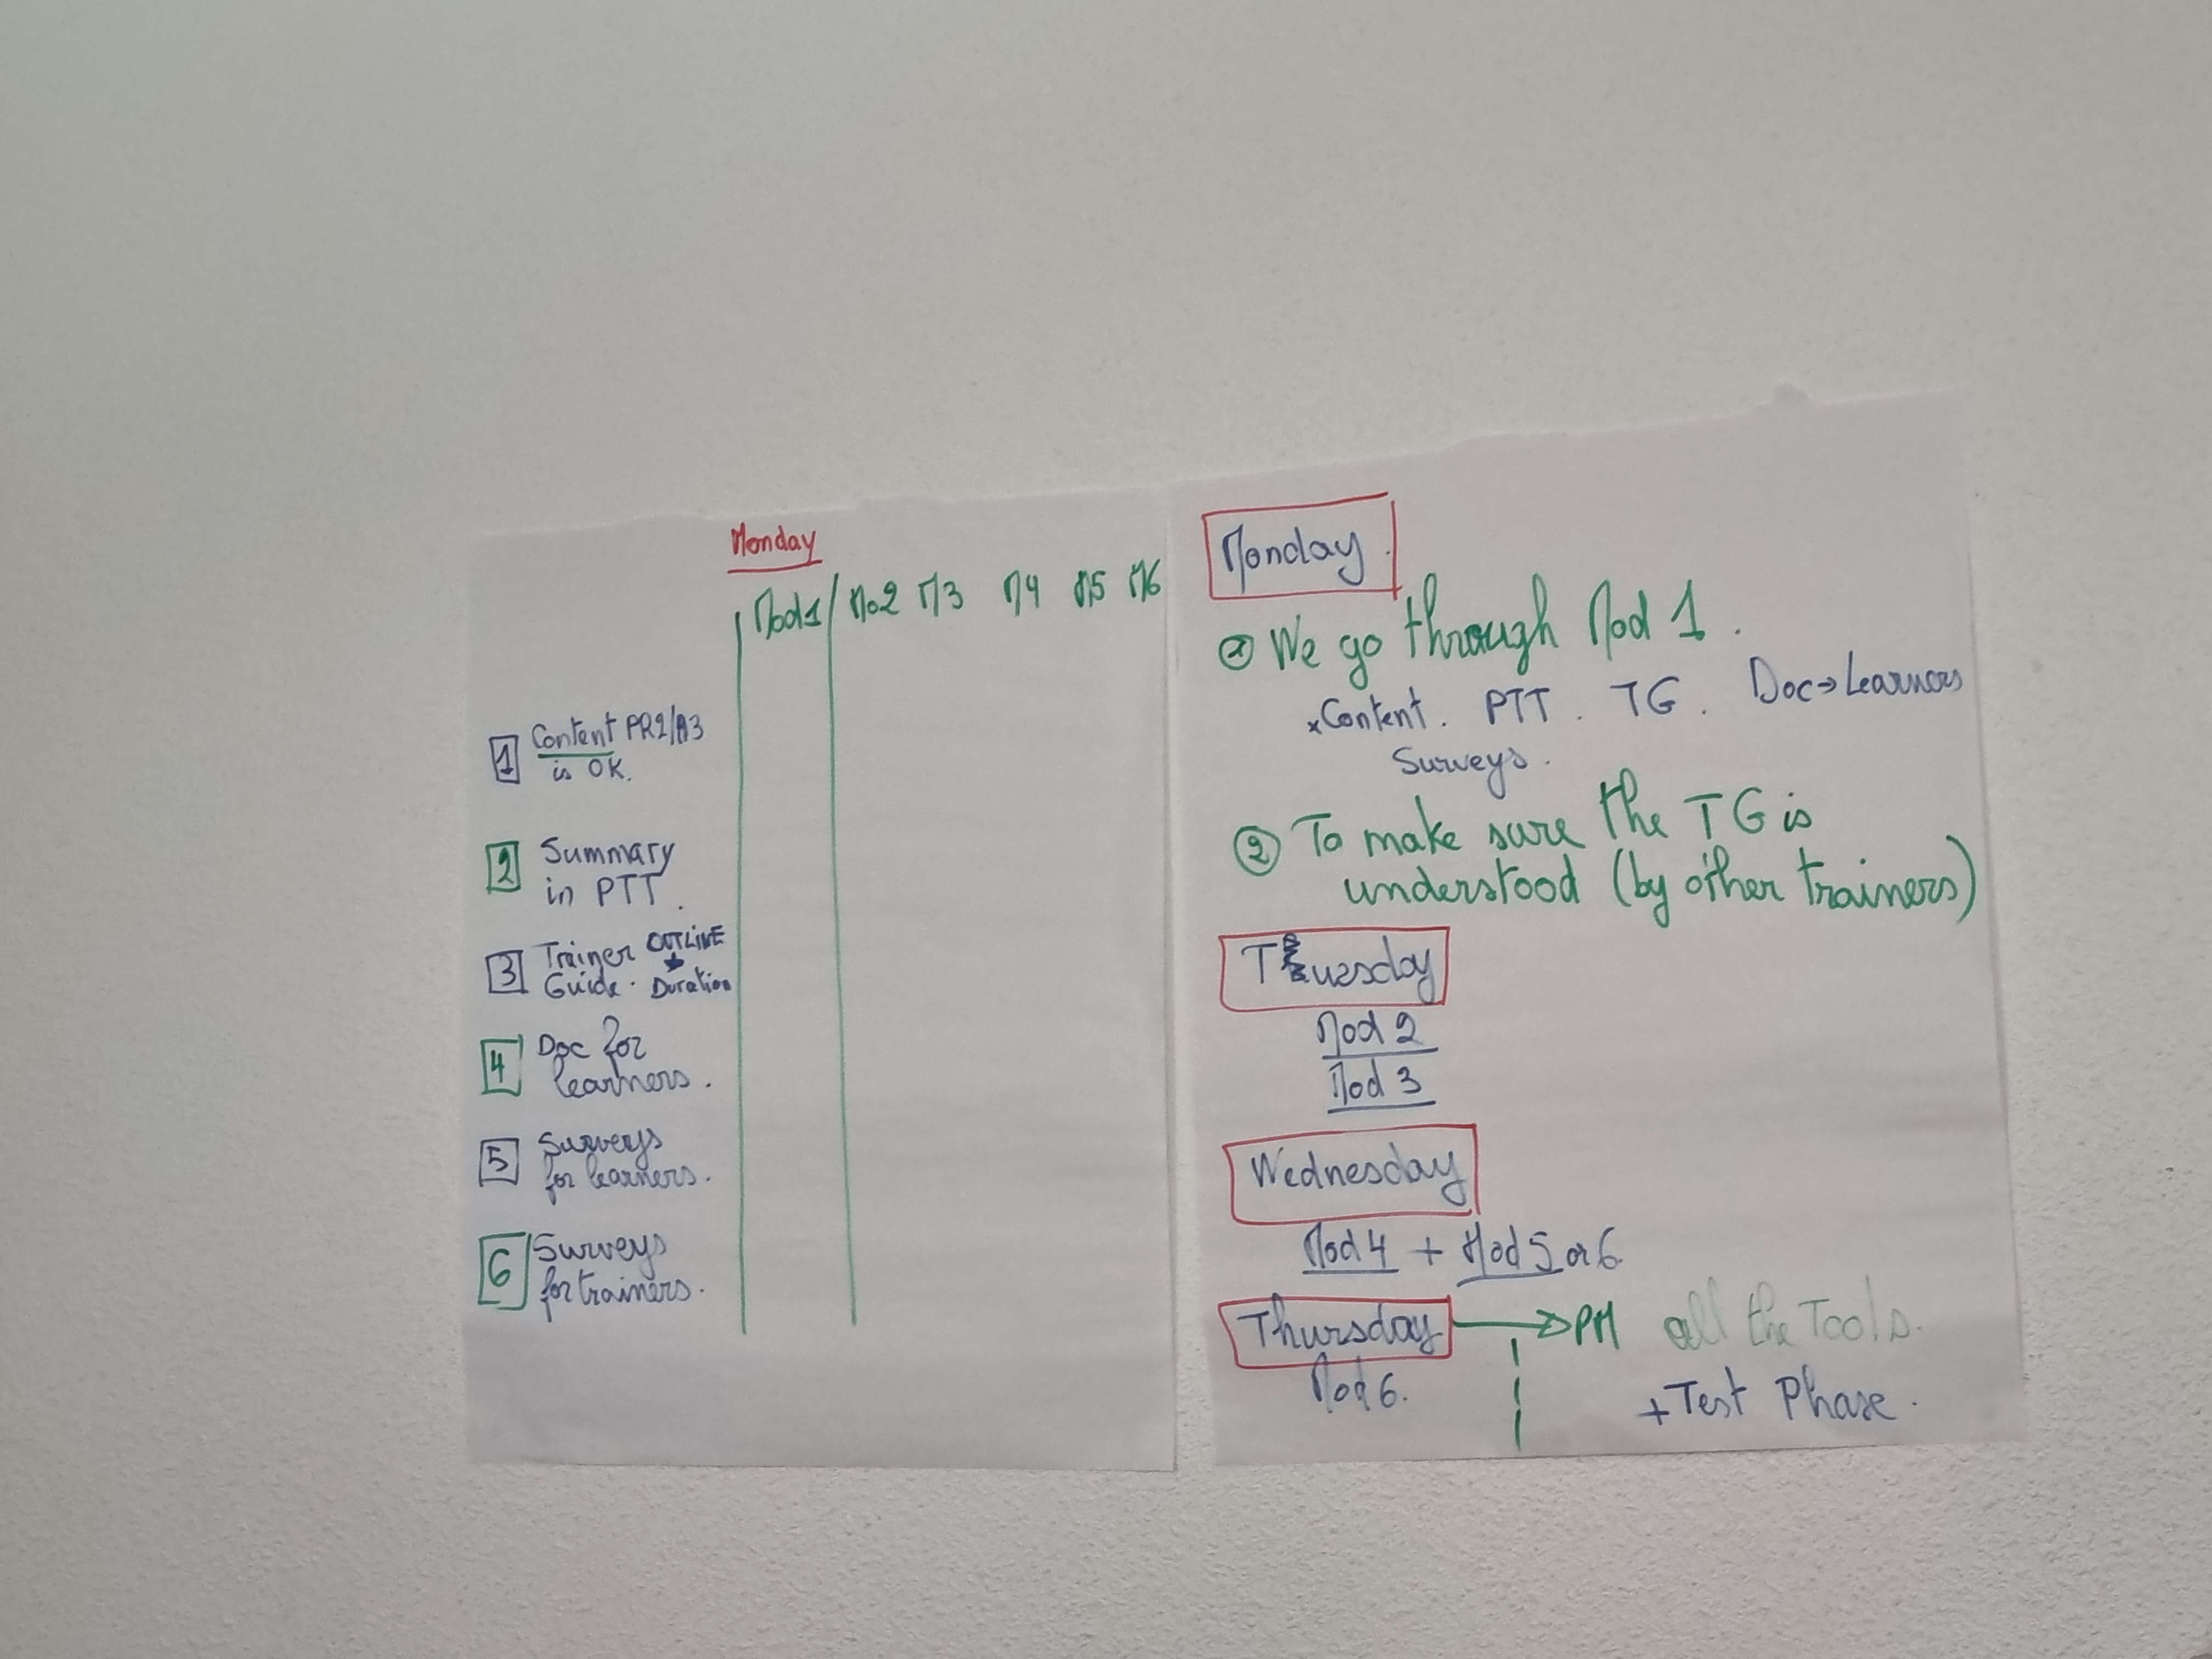 Monday
Mod1 Mo2 M3 M4 M5 M6
1 Content PR2/A3
is OK.
2 Summary
in PTT.
3 Trainer OUTLINE
Guide. Duration
4 Doc for
learners.
5 Surveys
for learners.
6 Surveys
for trainers.
Monday.
1 We go through Mod 1.
x Content. PTT. TG. Doc → Learners
Surveys.
2 To make sure the TG is
understood (by other trainers)
Tuesday
Mod 2
Mod 3
Wednesday
Mod 4 + Mod 5 or 6
Thursday → PM all the Tools.
Mod 6. + Test Phase.